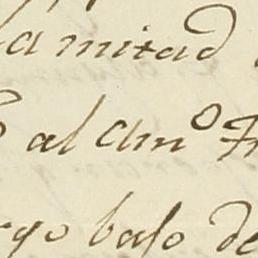 a mitad
al Amº Fr
rgo baso de